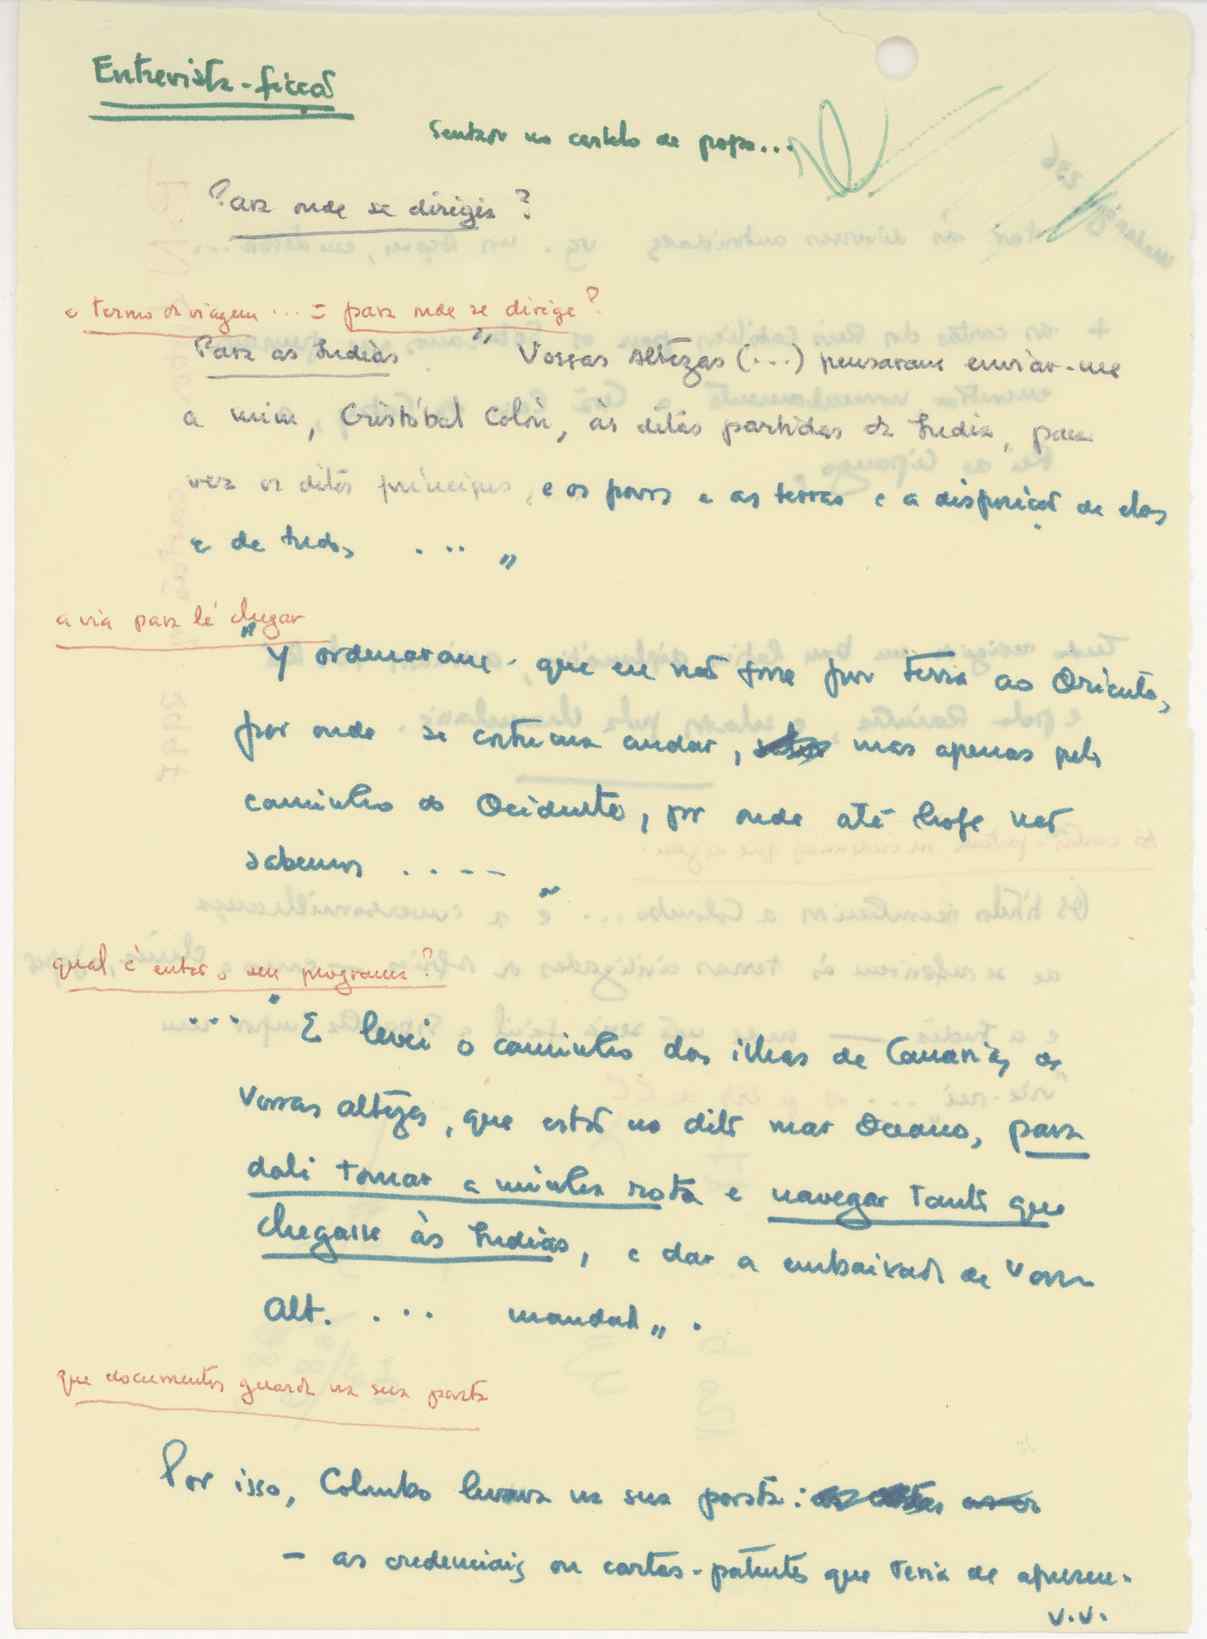 Entrevista-ficção
Sentar no castelo de popa...
Para onde se dirigia?
o termo da viagem ... = para onde se dirige?
Para as Indias " Vossas Altezas (...) pensaram enviar-me
a mim, Cristóbal Colón, às ditas partidas da India, para
ver os ditos principes, e os povos e as terras e a disposição de elas
e de tudo, ... "
a via para lá chegar
"Y ordenaram que eu não fosse por terra ao Oriente,
por onde se costuma andar, mas apenas pelo
caminho do Ocidente, por onde até hoje não
sabemos ..... "
qual é então o seu programa?
... " E levei o caminho das ilhas de Canaria, de
Vossas altezas, que estão no dito mar Oceano, para
dali tomar a minha rota e navegar tanto que
chegasse às Indias, e dar a embaixada de Vossas
Alt. ... mandado".
que documentos guarda na sua pasta
Por isso, Colombo levava na sua pasta:
- as credenciais ou cartas-patentes que teria de apresen-
v.v.